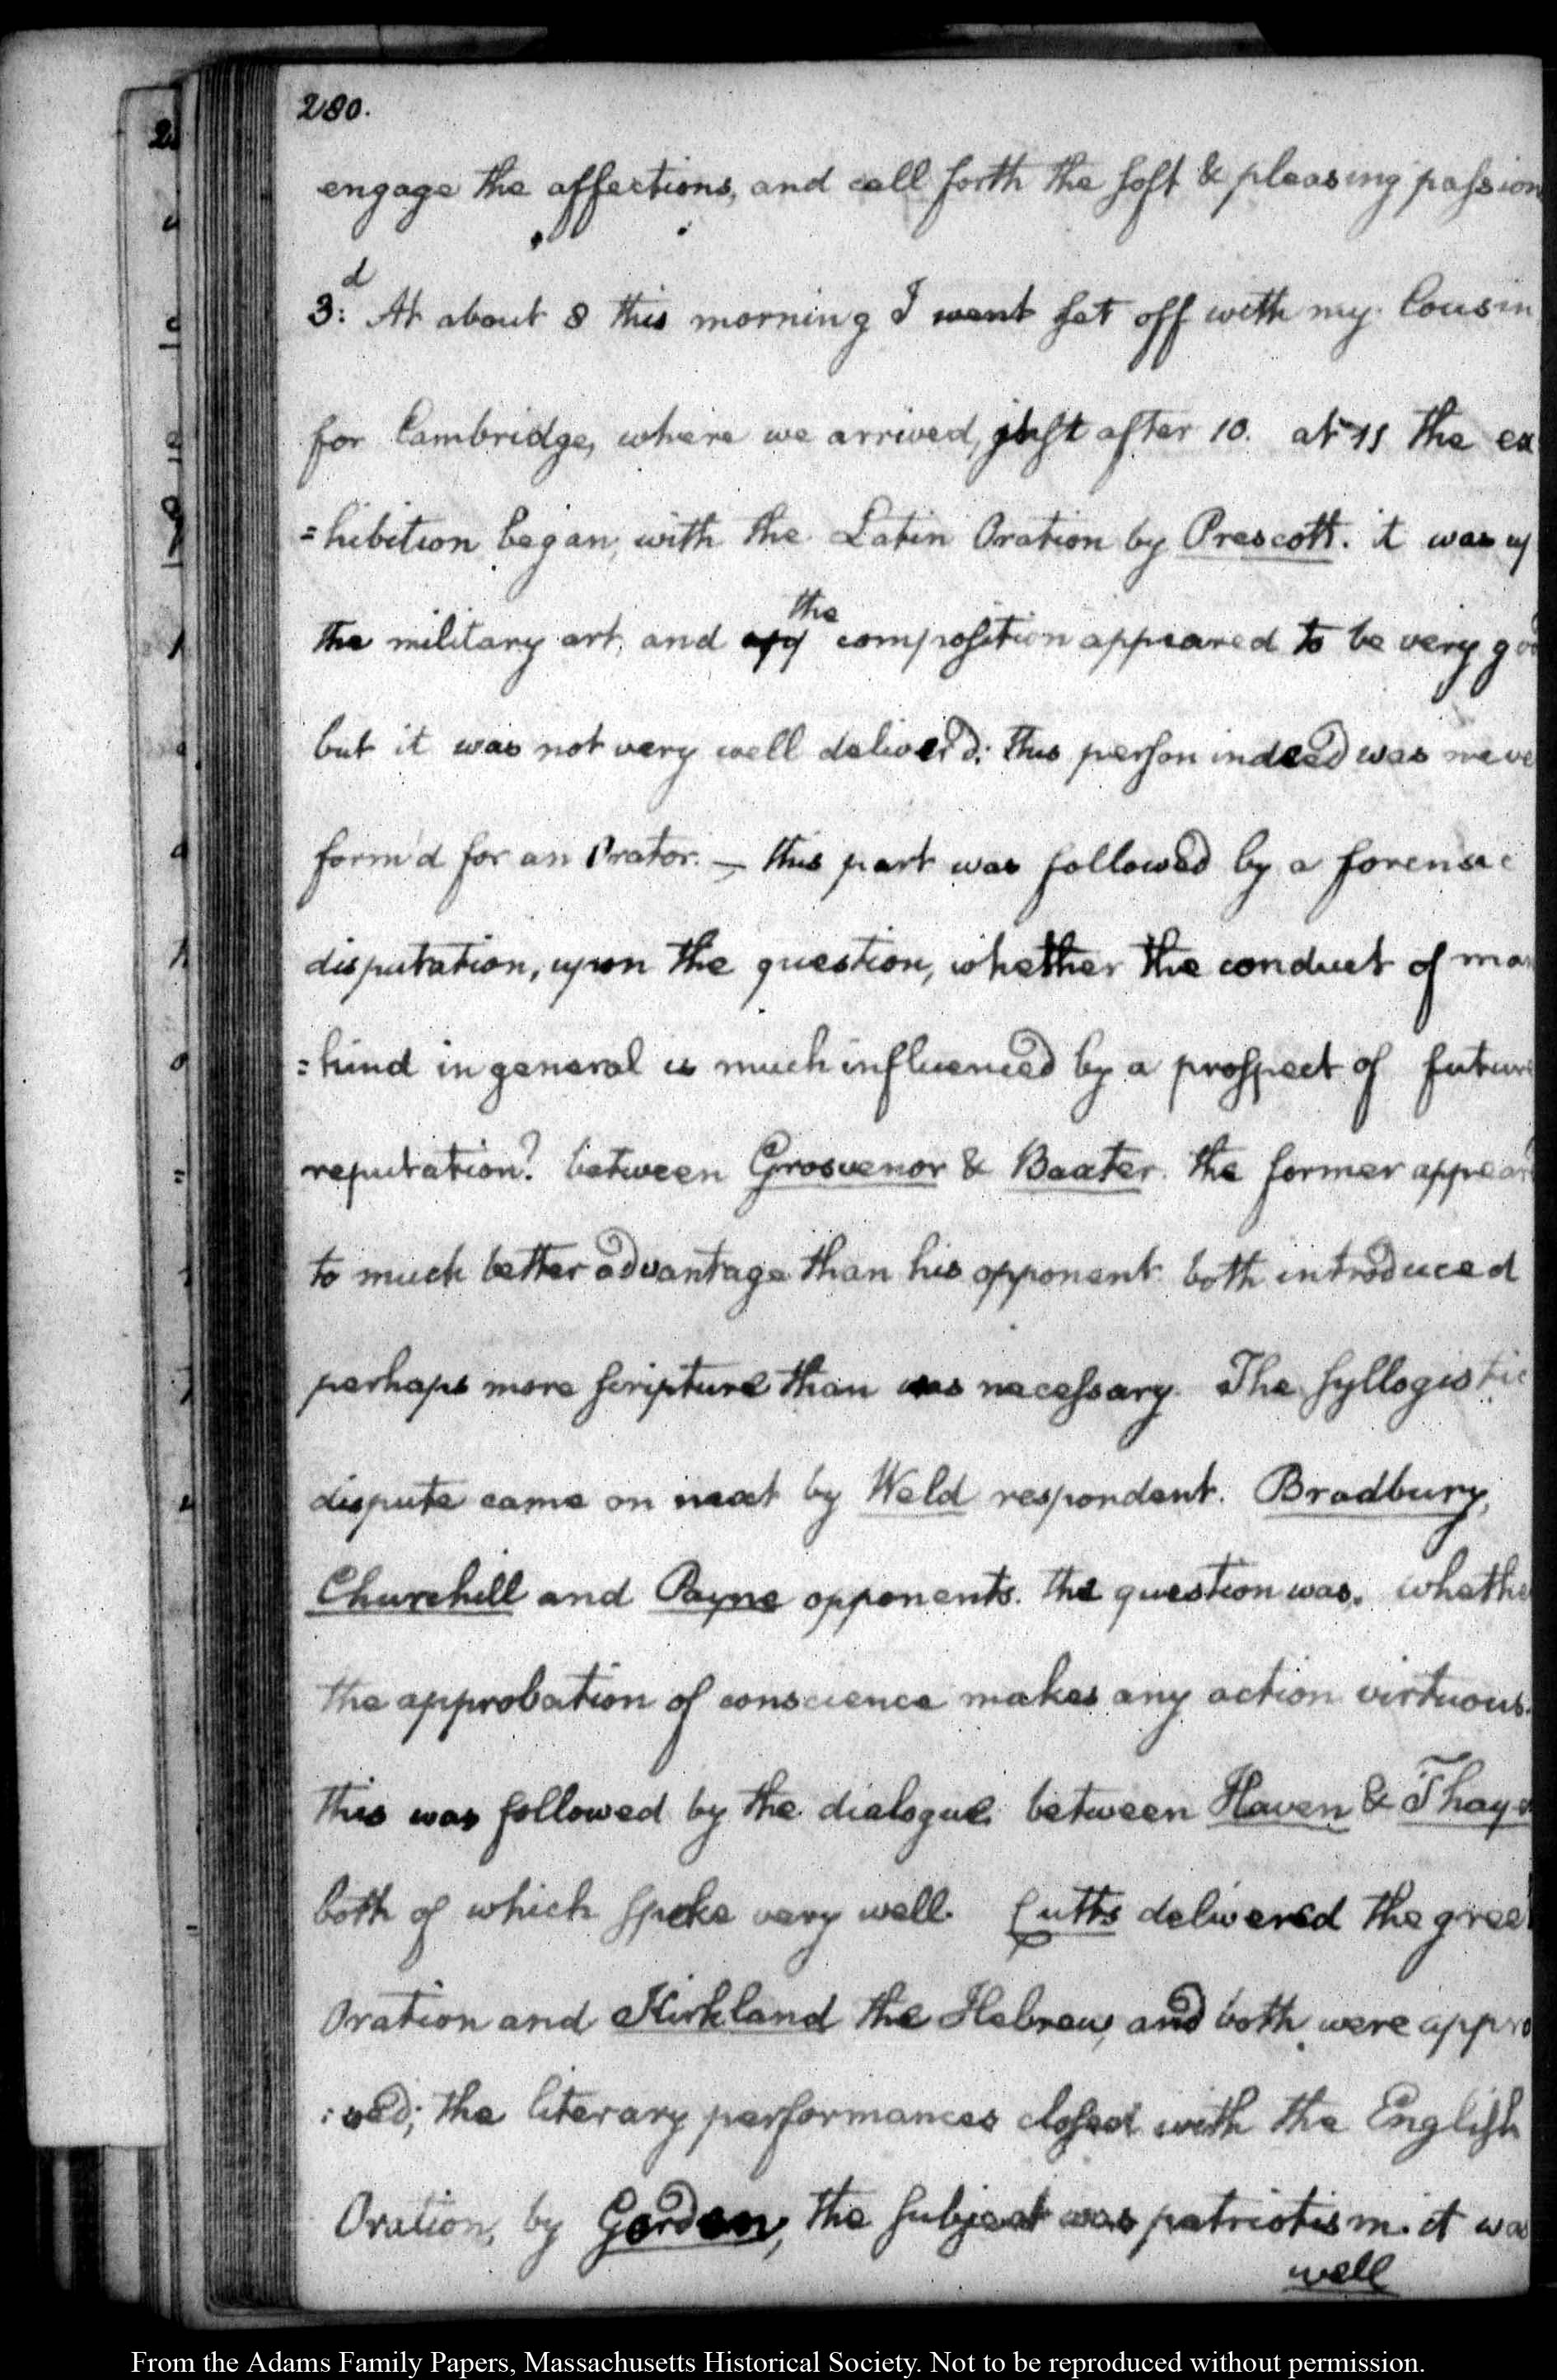 280.
engage the affections, and call forth the soft & pleasing passion
3:d At about 8 this morning I went set off with my Cousin
for Cambridge, where we arrived, just after 10. at 11 the ex
=hibition began, with the Latin Oration by Prescott. it was up
the military art, and the composition appeared to be very goo
but it was not very well deliver'd: this person indeed was neve
form'd for an Orator. — this part was followed by a forensic
disputation, upon the question, whether the conduct of man
=kind in general is much influenced by a prospect of future
reputation? between Grosvenor & Baxter. the former appear'd
to much better advantage than his opponent both introduced
perhaps more scripture than was necessary. The syllogistic
dispute came on next by Weld respondent. Bradbury,
Churchill and Payne opponents. the question was, whethe
the approbation of conscience makes any action virtuous.
this was followed by the dialogue between Haven & Thaye
both of which spoke very well. Cutts delivered the gree
Oration and Kirkland the Hebrew, and both were appro
:ved; the literary performances closed with the English
Oration, by Gordon, the subject was patriotism. it was
well
From the Adams Family Papers, Massachusetts Historical Society. Not to be reproduced without permission.